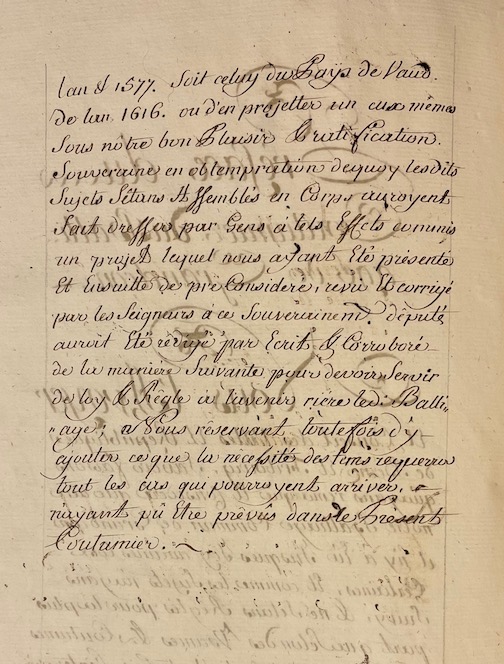 lan & 1577. Soit celuy du Païs de Vaud.
de lan 1616. ou d'en projetter un eux mêmes
Sous nôtre bon Plaisir & ratification.
Souveraine en obtempration dequoy lesdits
Sujets S'étans Assemblés en Corps, auroyent
Fait dresser par Gens à tels Effets commis
un projet lequel nous ayant Eté présenté
Et Ensuitte de prè Considéré, revu Et corrigé
par les Seigneurs à ce Souverainem.t députés
auroit Eté rédigé par Ecrit & Corroboré
de la maniere Suivante pour devoir Servir
de loy & Règle à l'avenir riére ledi. Balli-
-age; a Nous réservant toutefois d'y
ajouter ce que la nécessité des tems requerra
tout les cas qui pourroyent arriver,
n'ayant pû Etre prévûs dans le Présent
Coutumier.